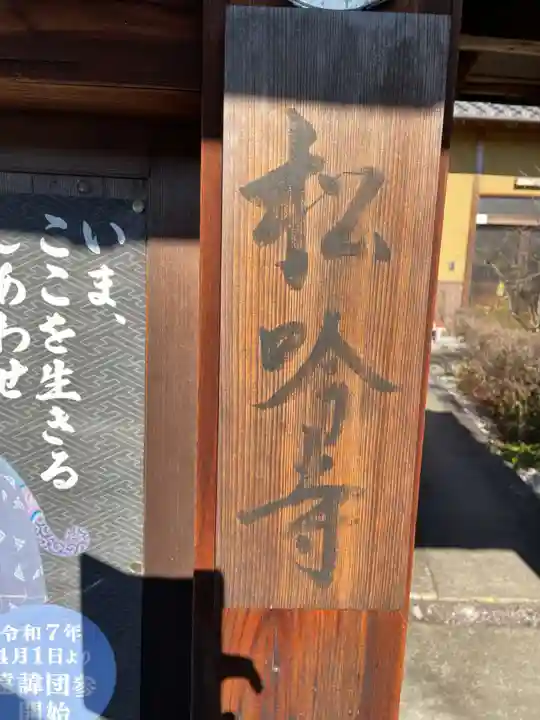 松吟寺
いま、
ここを生きる
しあわせ
令和7年
4月1日より
団参
開始